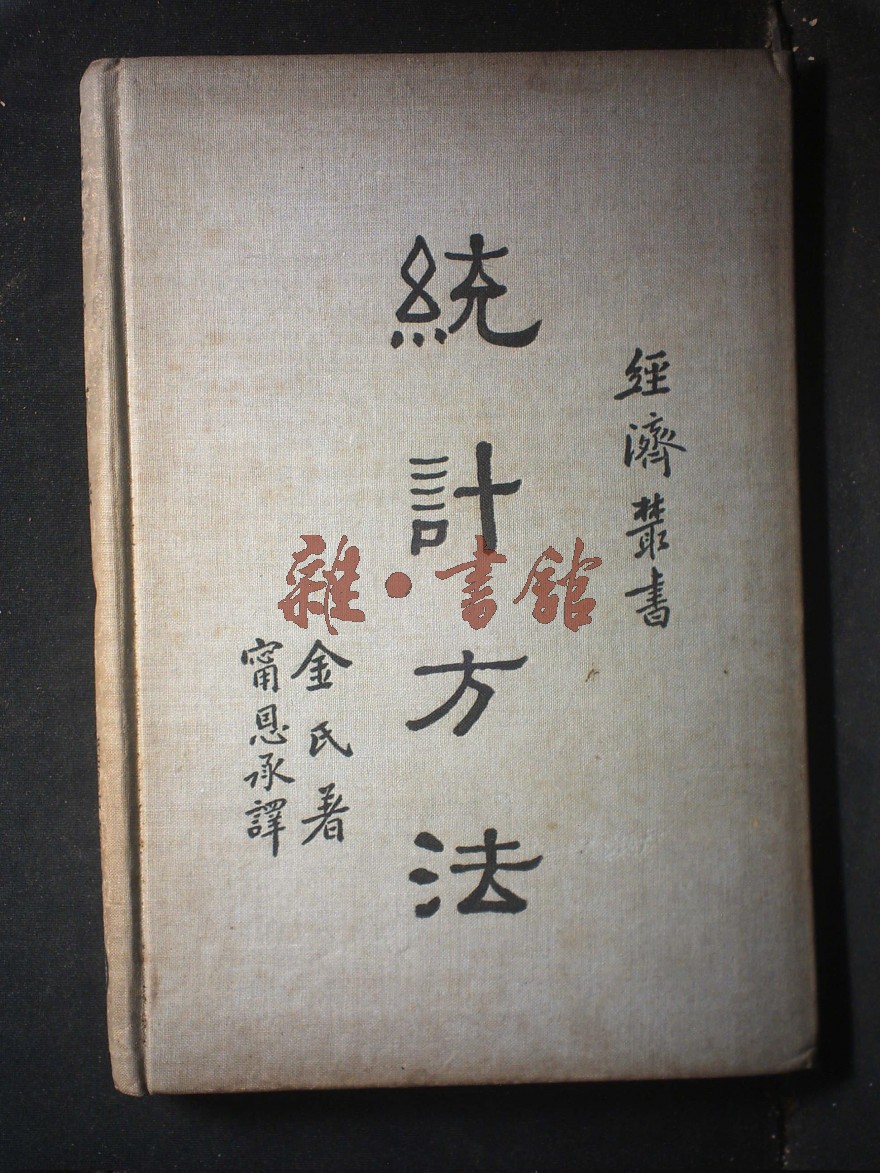 經濟叢書
統計方法
金氏著
甯恩承譯
雜·書館